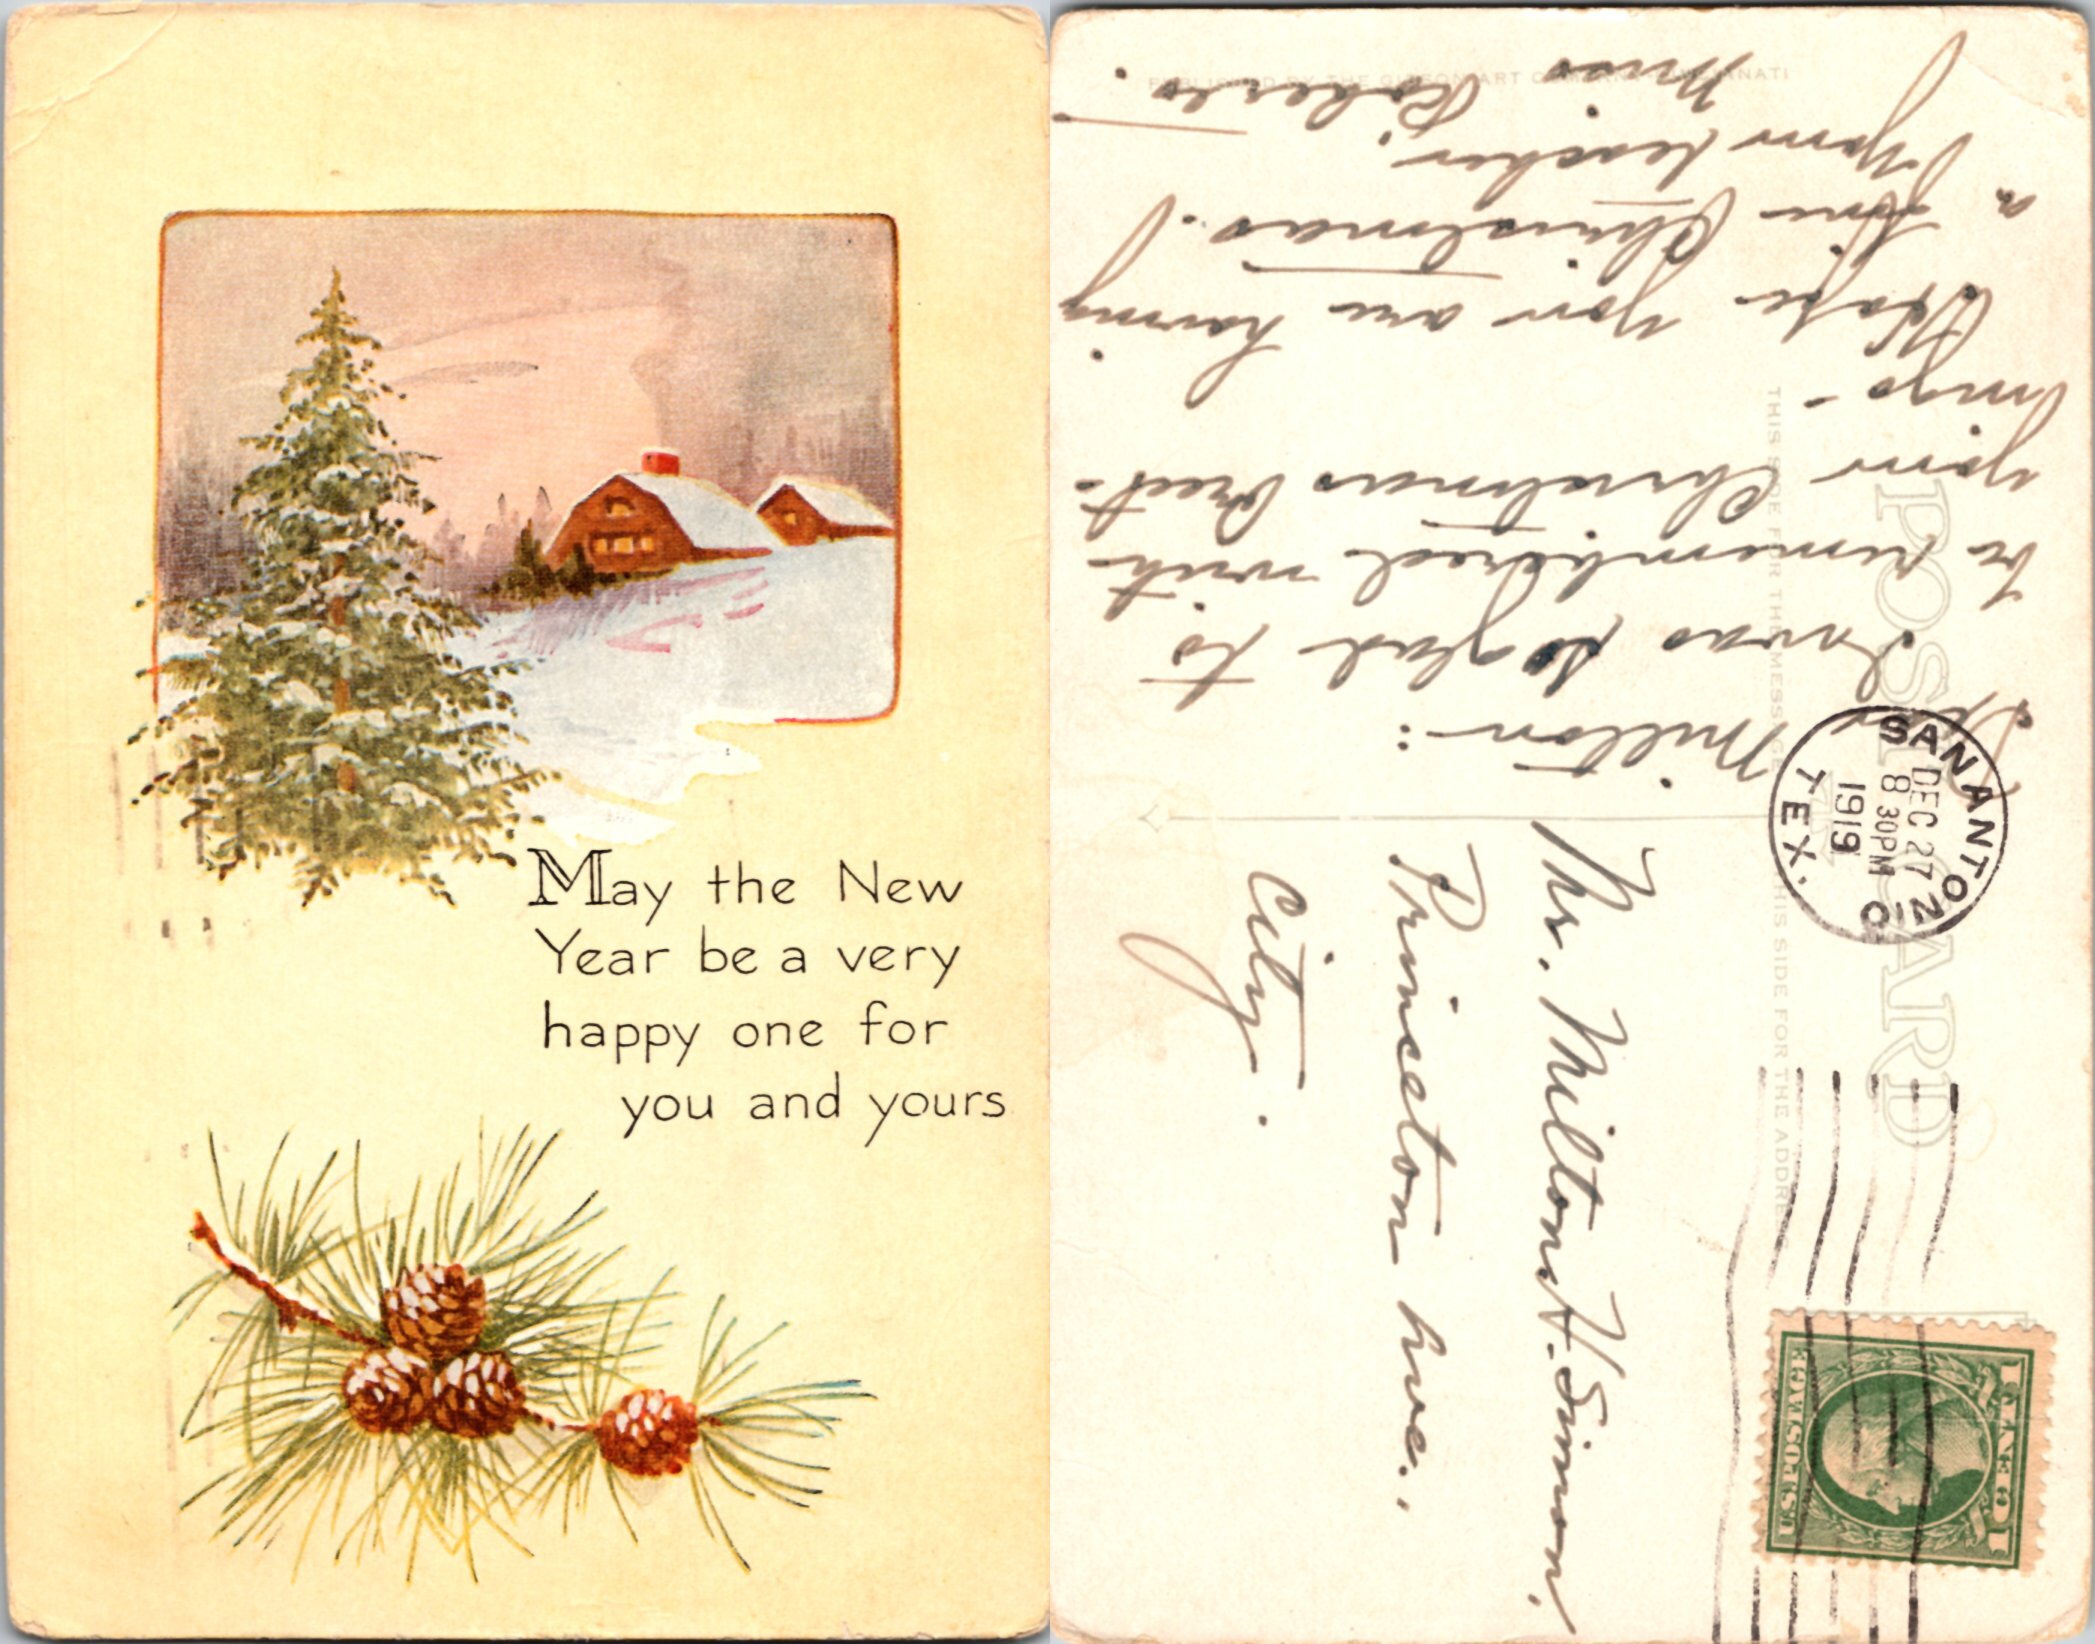 May the New
Year be a very
happy one for
you and yours
PUBLISHED BY THE GIBSON ART COMPANY CINCINNATI
POST CARD
THIS SIDE FOR THE MESSAGE
THIS SIDE FOR THE ADDRESS
SAN ANTONIO
TEX.
DEC 27
8 30PM
1919
U.S. POSTAGE
1 CENT 1
Milton:
I was so glad to
be remembered with
your Christmas Greet-
ings -
Hope you are having
a fine Christmas.
Your teacher,
Miss Roberts.
Mr. Milton H. Simon,
Princeton Ave.,
City.